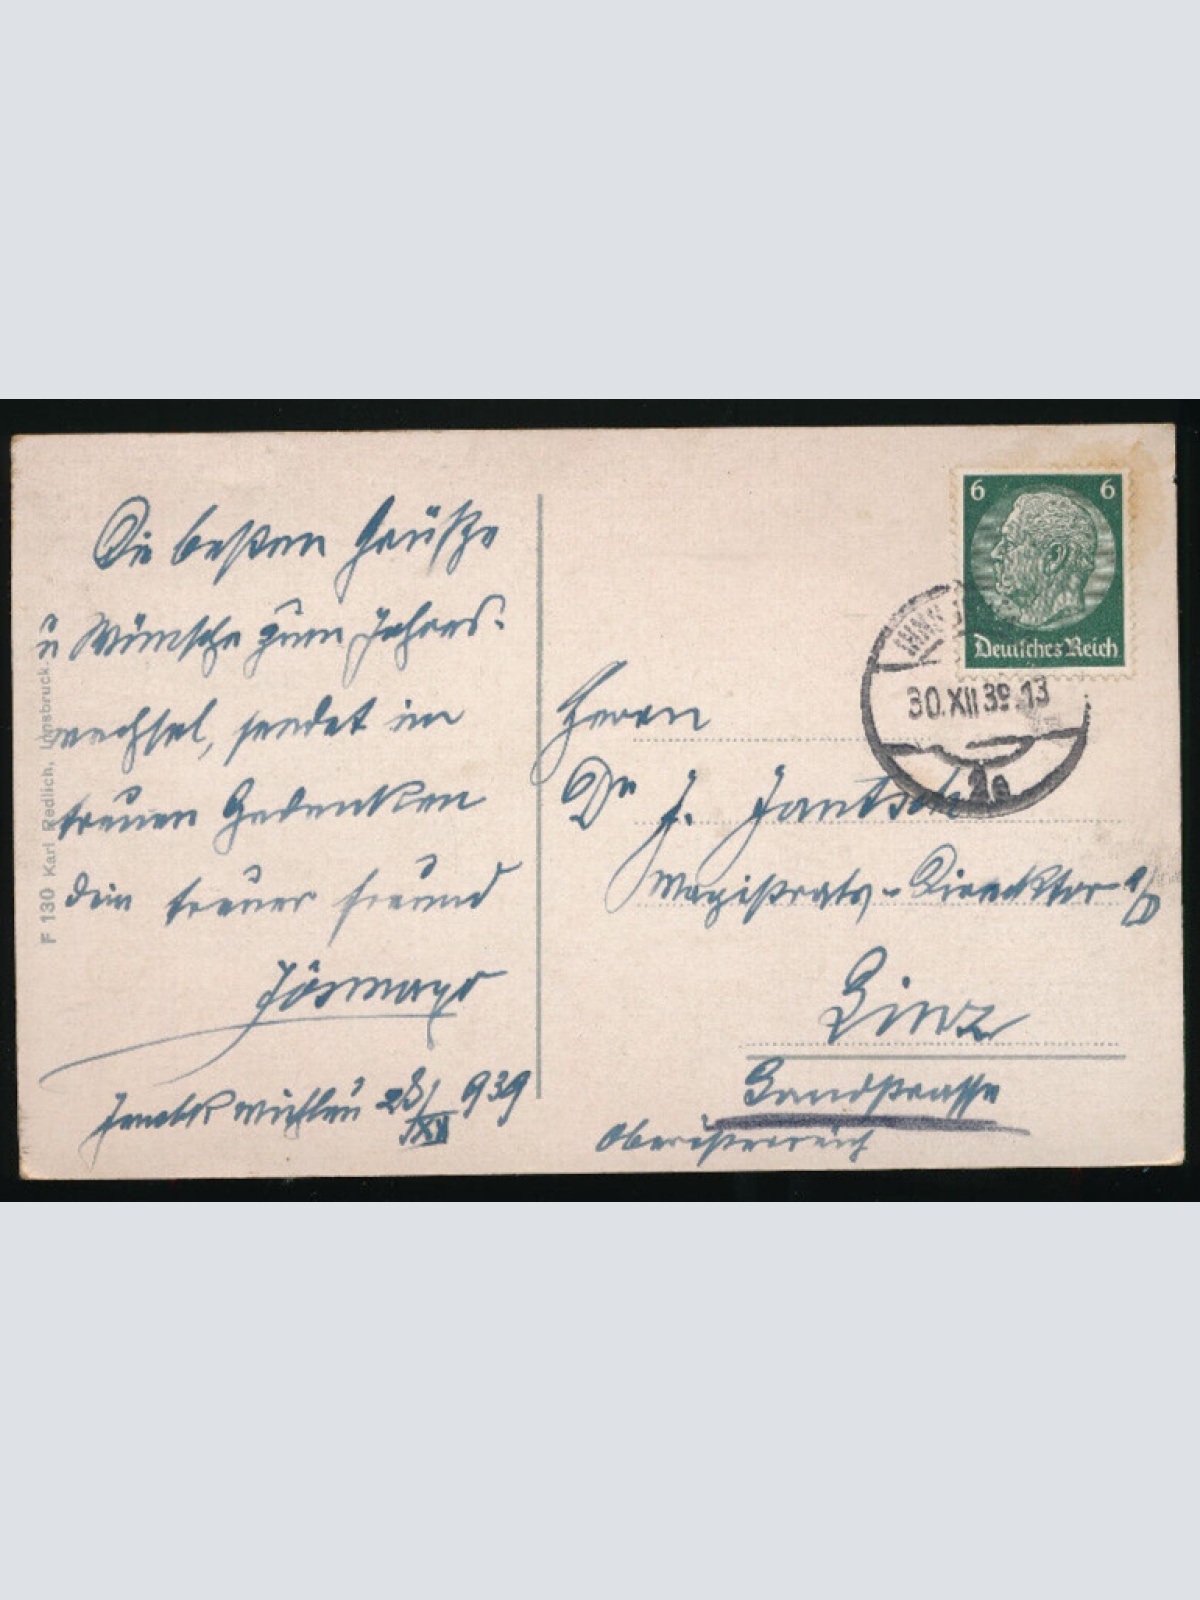 Die besten Grüße
u Wünsche zum Jahres-
wechsel, sendet im
treuen Gedenken
dein treuer Freund
28/XII 939
F 130 Karl Redlich, Innsbruck.
6 6
Deutsches Reich
30.XII 39.13
2a
Herrn
Dr J. Jantsch
Magistrats-Direktor
Linz
Landstrasse
Oberösterreich